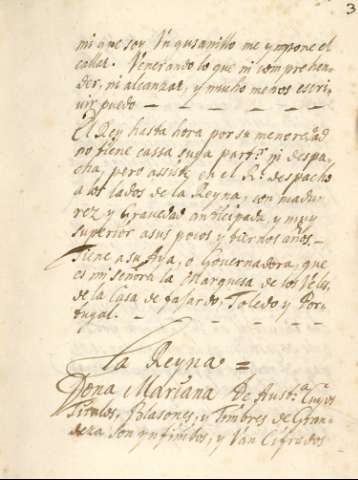 3
mi que soy Vn gusanillo me ympone el
callar. Venerando lo que ni comprehen-
der, ni alcanzar, y mucho menos escri-
uir puedo
El Rey hasta hora por su menor edad
no tiene cassa suya part.r ni despa-
cha, pero assiste en el R.l despacho
a los lados de la Reyna, con madu-
rez y Grauedad anticipada, y muy
superior a sus pocos y tiernos años
Tiene a su Aya, o Gouernadora, que
es mi señora la Marquesa de los Velez,
de la Casa de fajardo, Toledo y Por-
tugal.
La Reyna =
Doña Mariana De Aust.a Cuyos
Titulos, Blasones, y Timbres de Gran-
deza son ynfinitos, y Van Cifrados